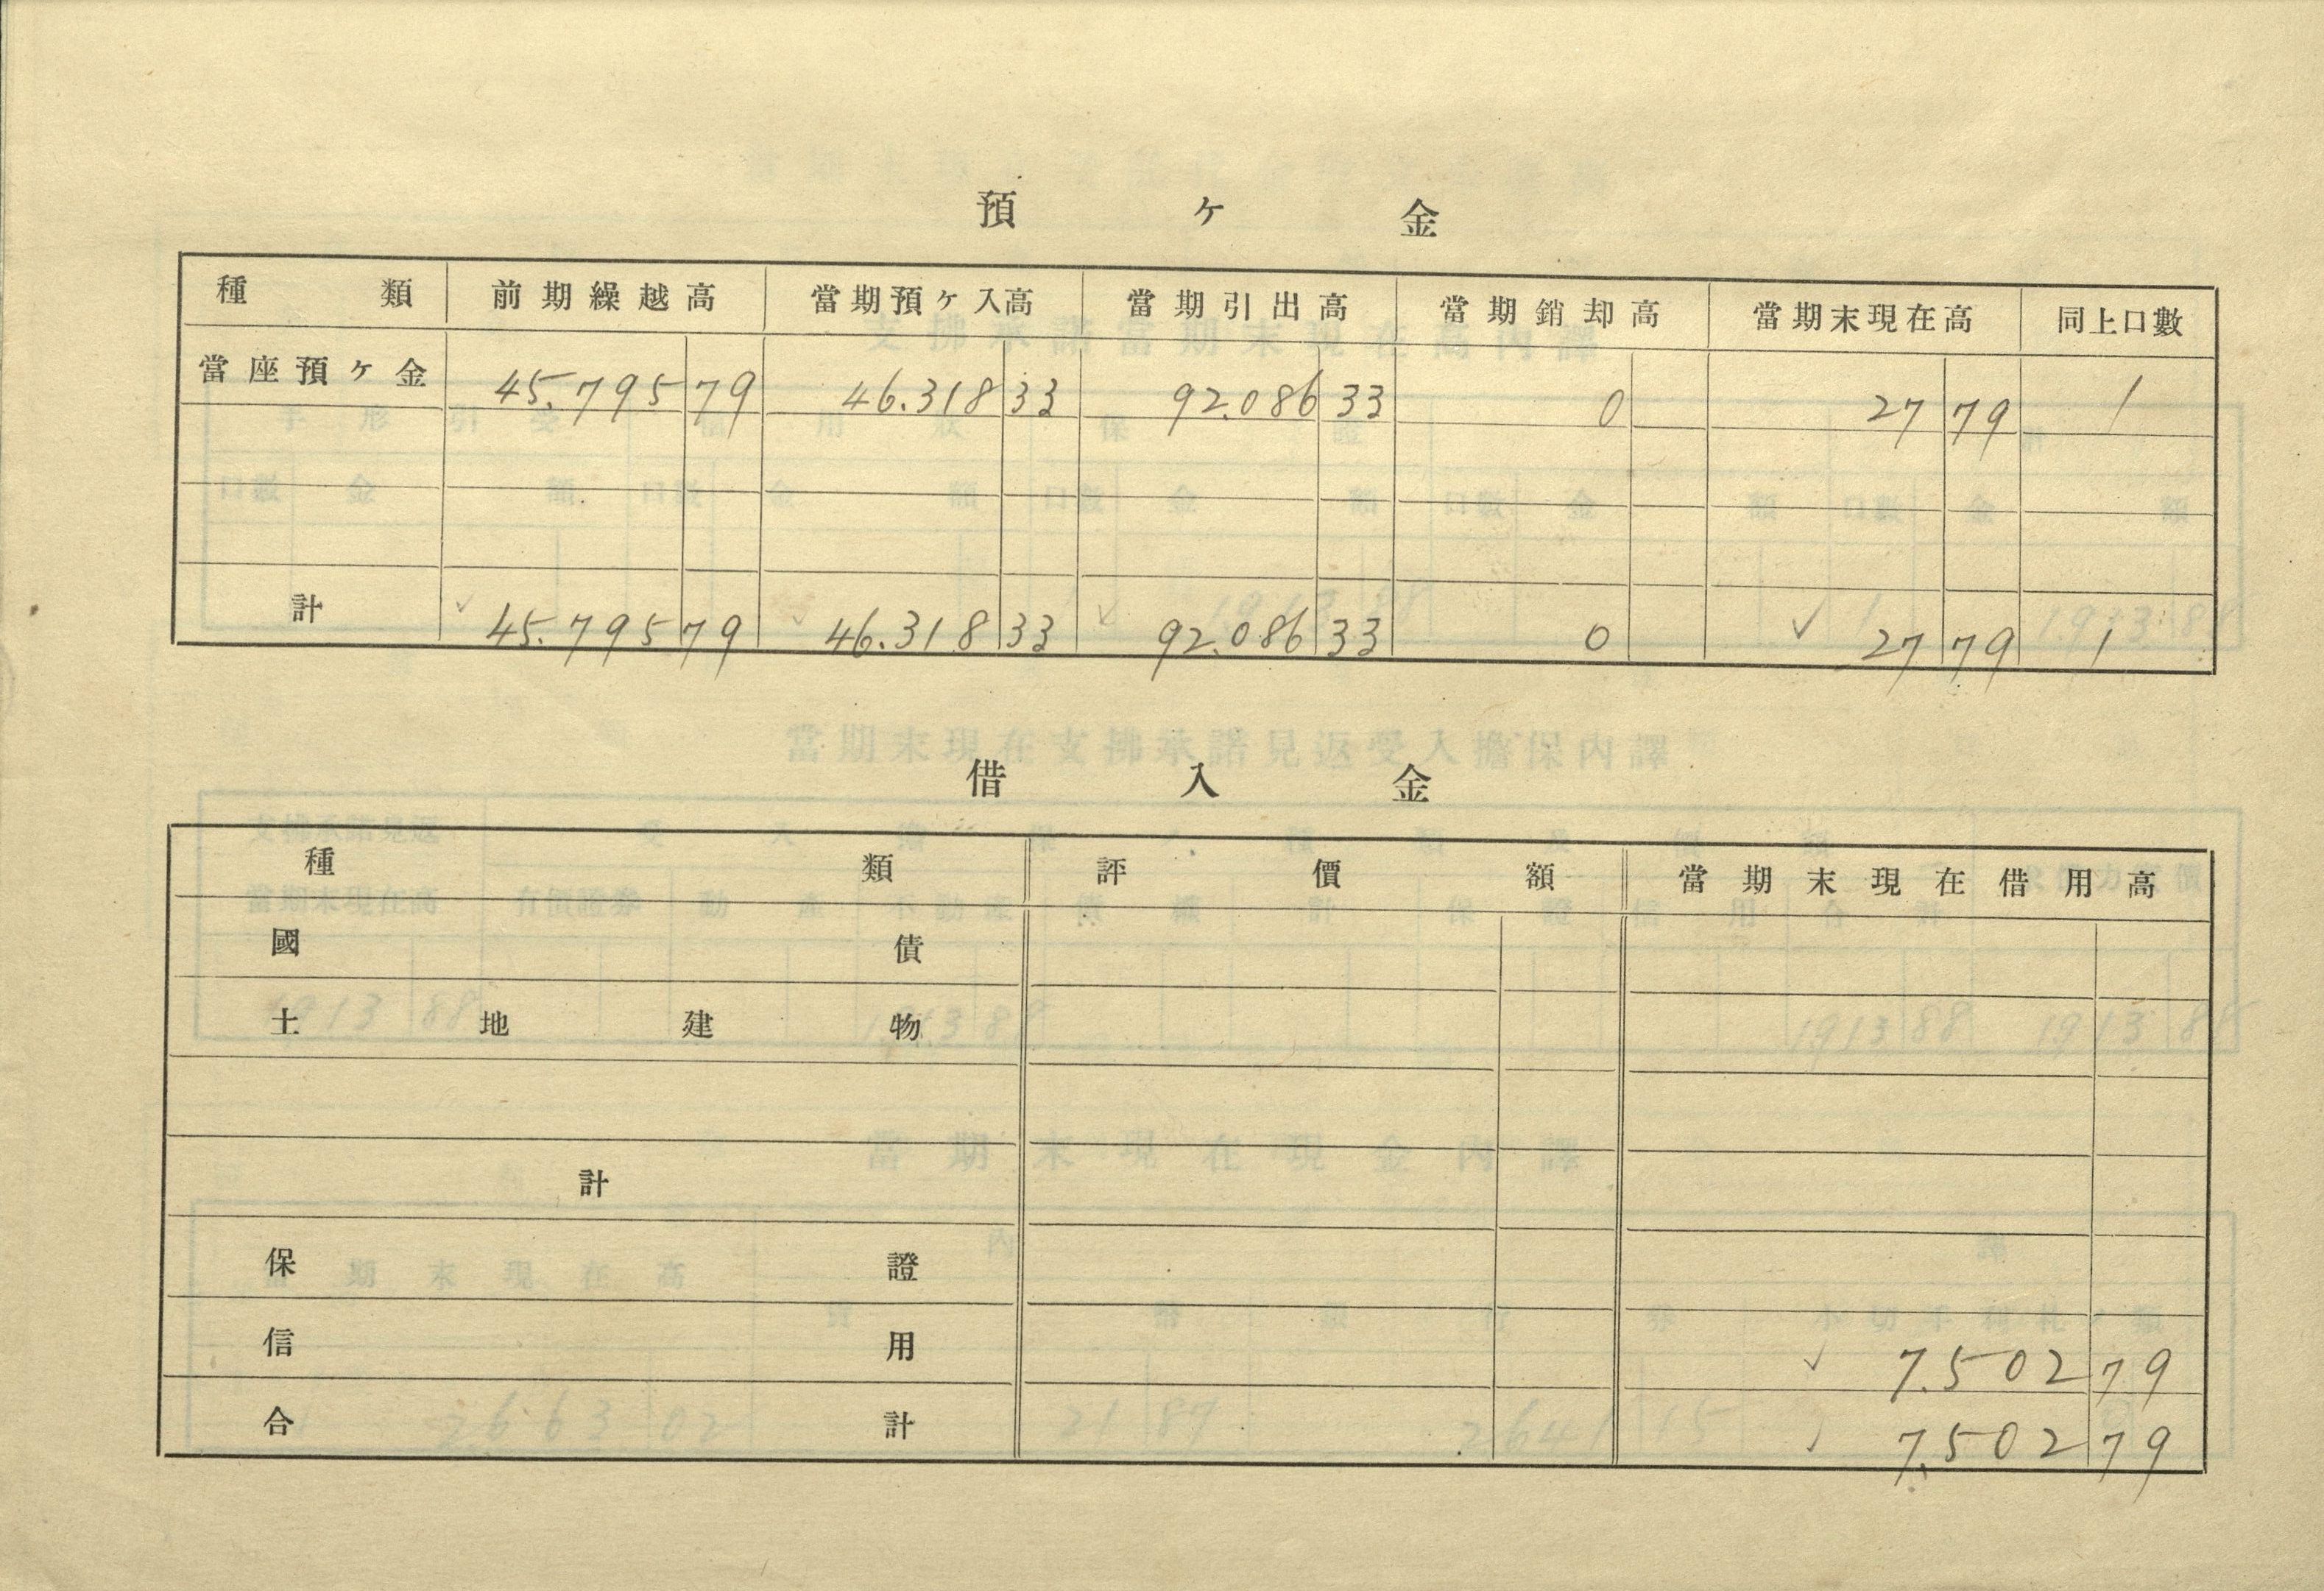 預ヶ金
種類 前期繰越高 當期預ヶ入高 當期引出高 當期銷却高 當期末現在高 同上口數
當座預ヶ金 45.795 79 46.318 33 92.086 33 0 27 79 1
計 45.795 79 46.318 33 92.086 33 0 27 79 1
借入金
種類 評價額 當期末現在借用高
國債
土地建物
計
保證
信用 7.502 79
合計 7.502 79